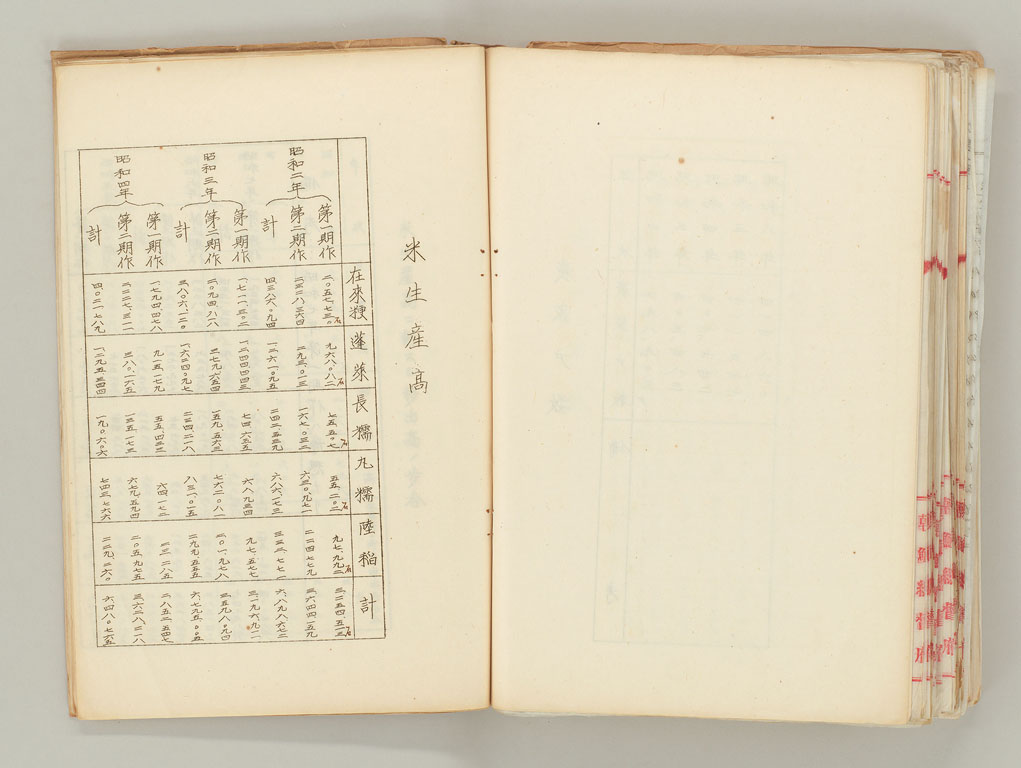 米生産高
在來粳
蓬萊
長糯
丸糯
陸稲
計
昭和二年
第一期作 二、〇五七、七三〇石 九六八、〇八二石 七五、五〇七石 五五、二〇二石 九七、九九二石 三、二五四、五一三石
第二期作 二、三二八、三六四 二九三、〇一三 一六七、〇三二 六三〇、九七一 二二四、七七九 三、六四四、一五九
計 四、三八六、〇九四 一、二六一、〇九五 二四二、五三九 六八六、一七三 三二二、七七一 六、八九八、六七二
昭和三年
第一期作 一、七一一、三〇二 一、二四四、四四三 七四、六五五 六八、九三四 九七、五七七 三、一九六、九一一
第二期作 二、〇九四、八一八 三七九、六五四 一五九、五六三 七六二、〇八一 二〇一、九七八 三、五九八、〇九四
計 三、八〇六、一二〇 一、六二四、〇九七 二三四、二一八 八三一、〇一五 二九九、五五五 六、七九五、〇〇五
昭和四年
第一期作 一、七九四、四七八 九一五、一七九 五五、四三三 六四、一七二 二三、二八五 二、八五二、五四七
第二期作 二、二二七、三一一 三八〇、一六五 一三五、一七三 六七九、五九四 二〇五、九七五 三、六二八、二一八
計 四、〇二一、七八九 一、二九五、三四四 一九〇、六〇六 七四三、七六六 二二九、二六〇 六、四八〇、七六五